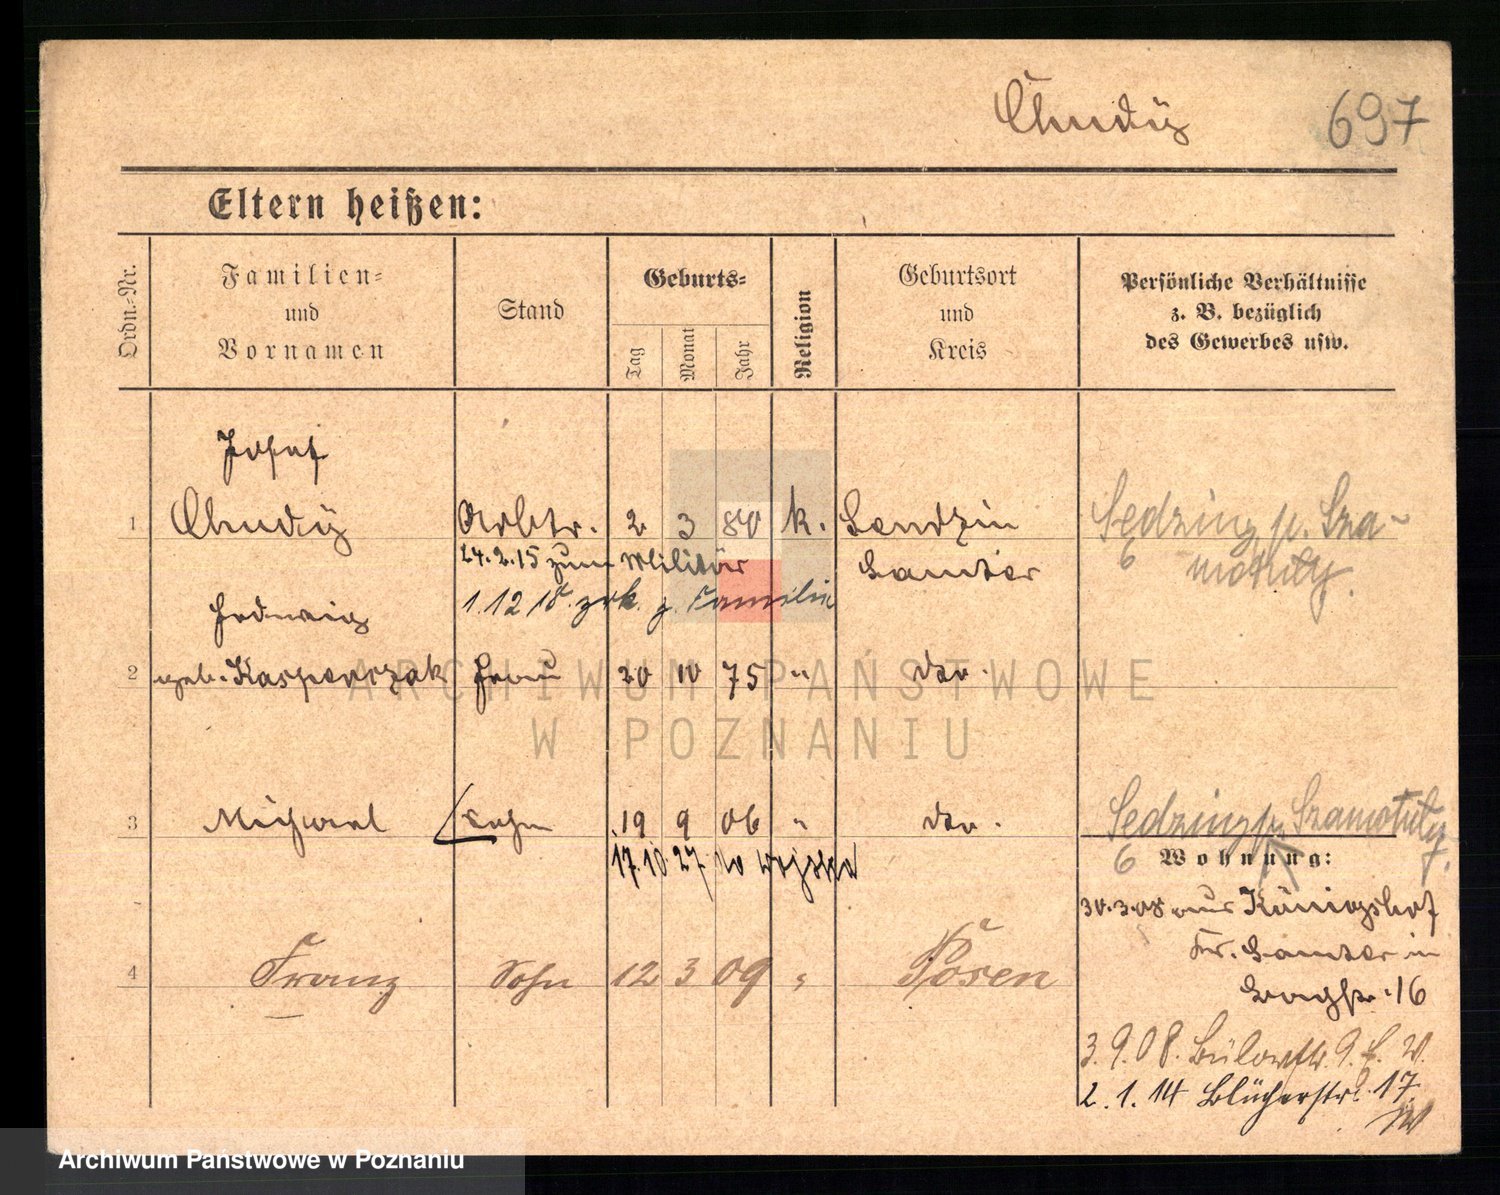 Chudÿ 697
Eltern heißen:
Ordn.-Nr.
Familien-
und
Vornamen
Stand
Geburts-
Tag
Monat
Jahr
Religion
Geburtsort
und
Kreis
Persönliche Verhältnisse
z. B. bezüglich
des Gewerbes usw.
Josef
1 Chudÿ Arbtr. 2 3 80 k. Sendzin
Samter
24.2.15 zum Militär
1.12 18. zrk. z. Familie
Sędziny p. Sza-
motuły.
Hedwig
2 geb. Kasperczak Frau 20 10 75 " do.
ARCHIWUM PAŃSTWOWE
W POZNANIU
3 Michael Sohn 19 9 06 " do.
17.10.27 do wojska
Sędziny p. Szamotuły.
Wohnung:
30.3.08 aus Königshof
Kr. Samter in
16
4 Franz Sohn 12 3 09 " Posen
3.9.08. Bülowstr. 9.
2.1.14 Blücherstr. 17.
Archiwum Państwowe w Poznaniu